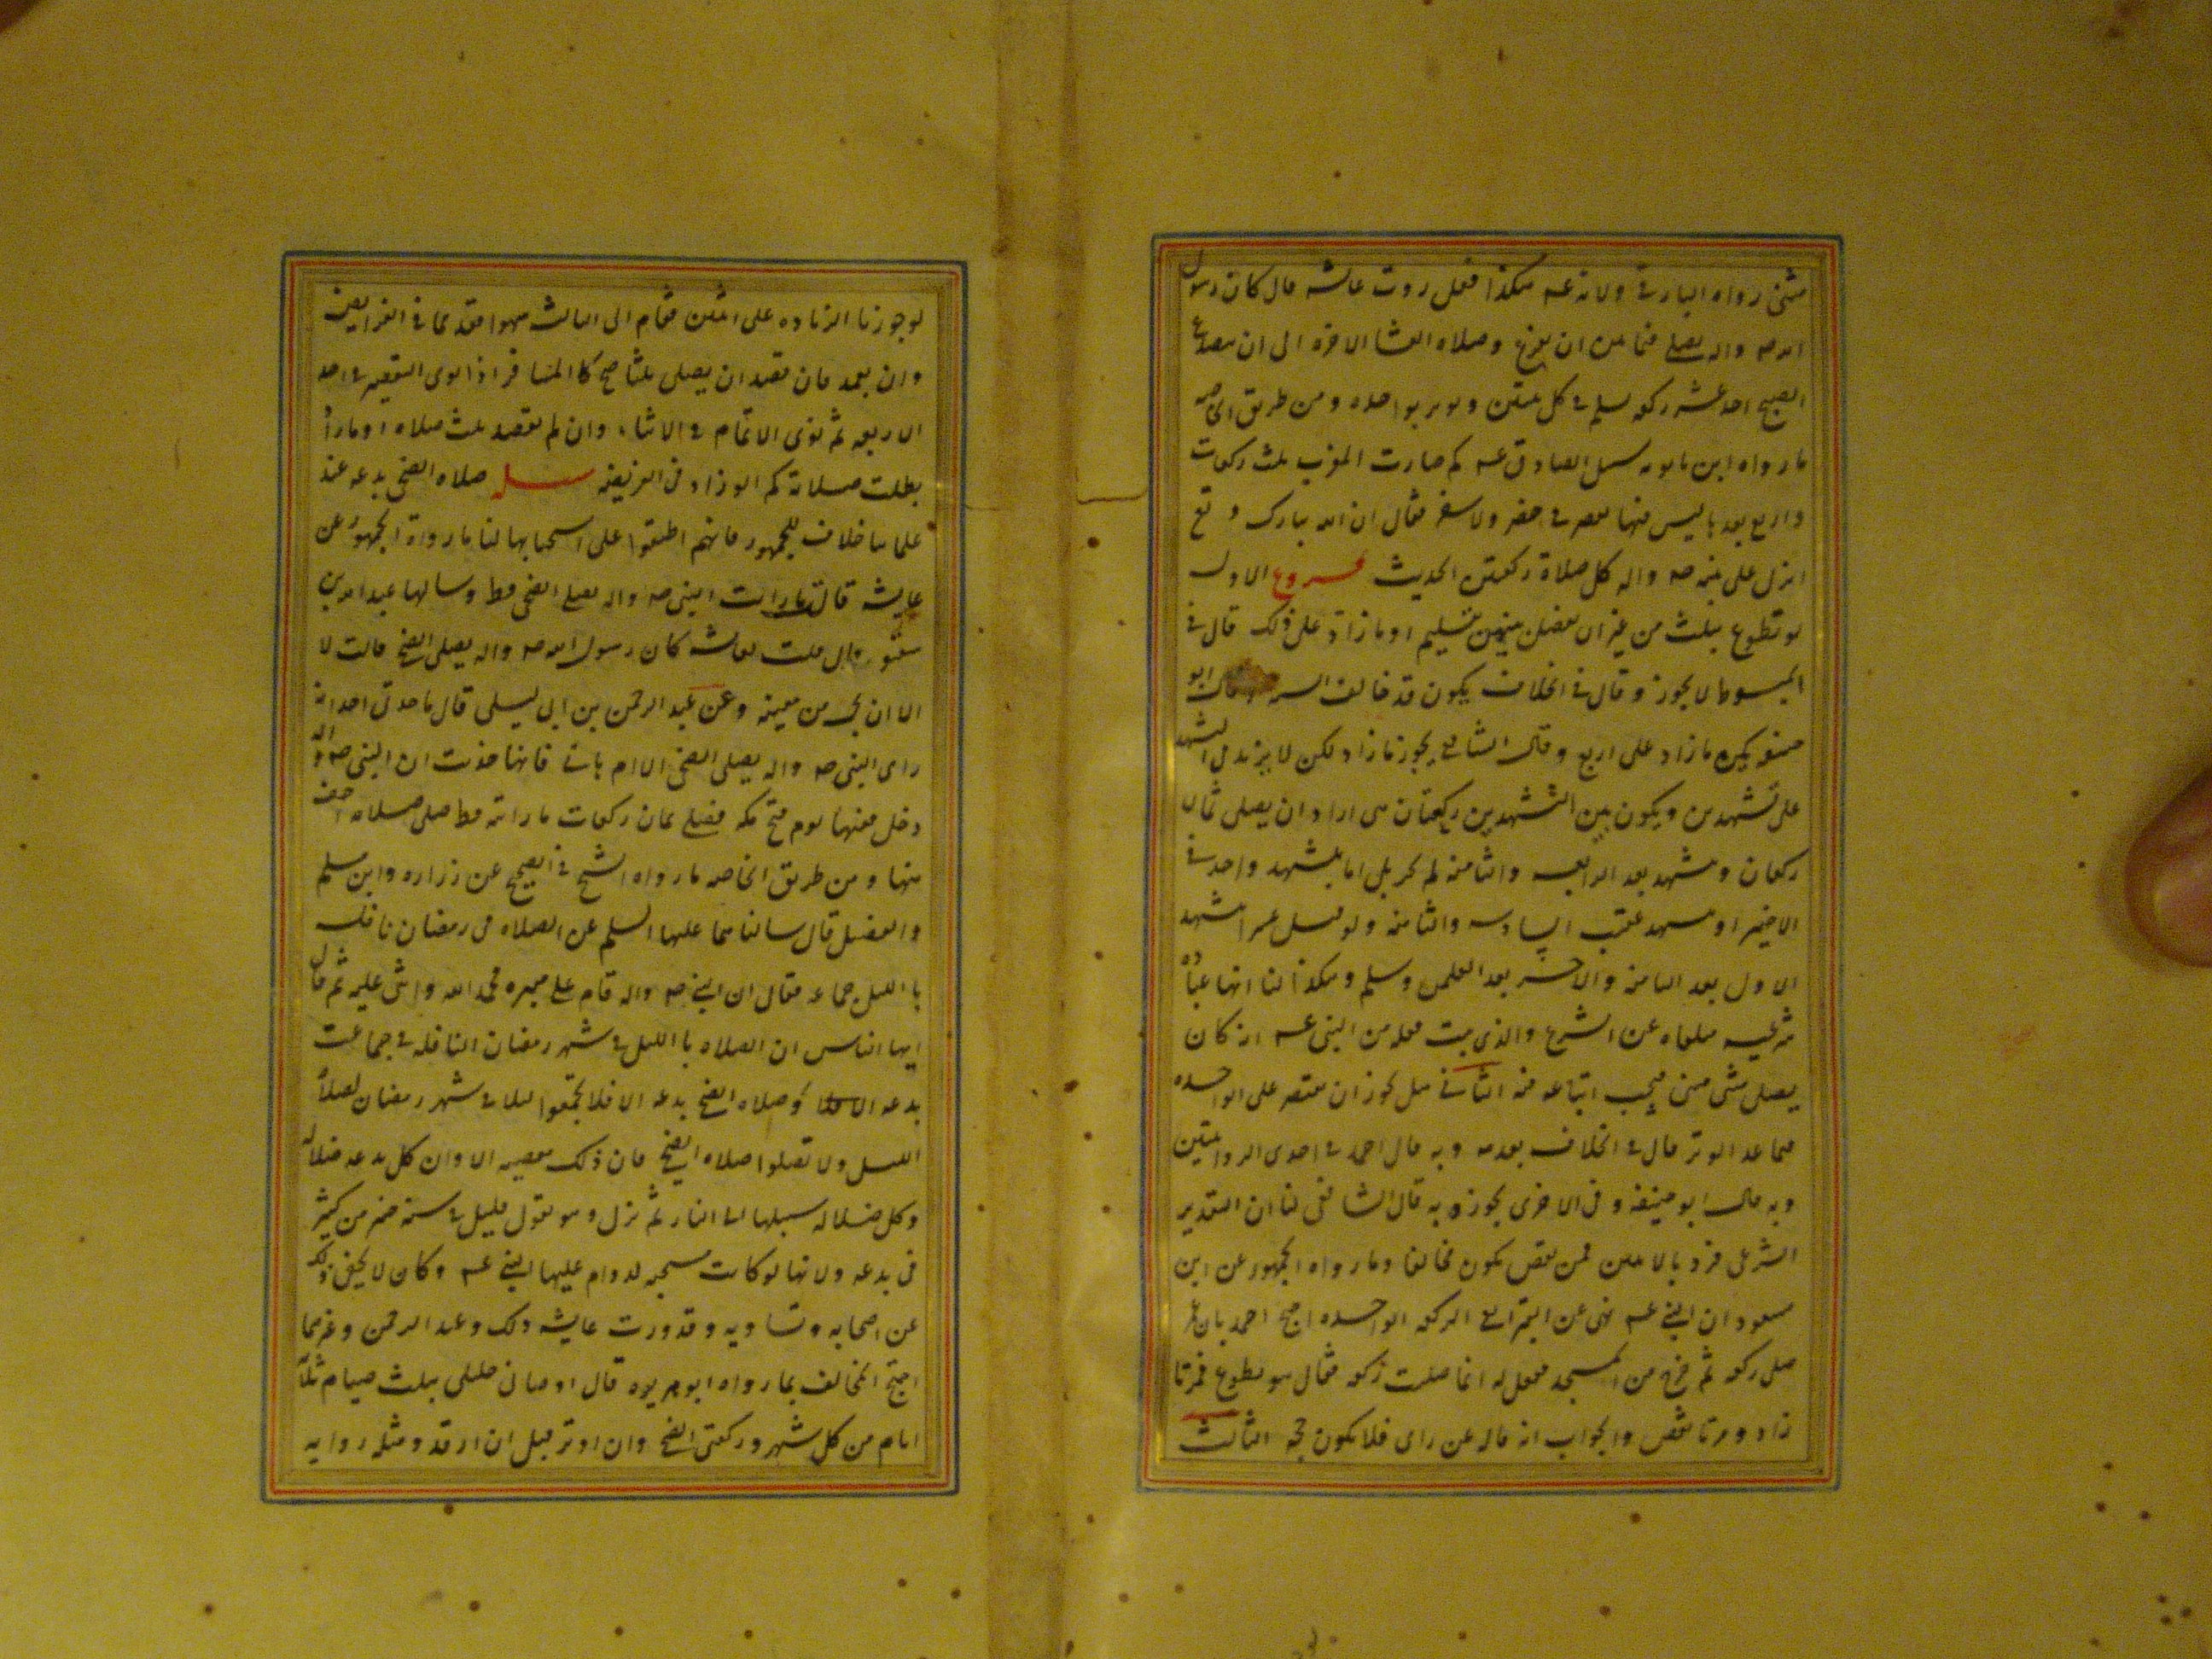 مثنى رواه البارقى ولانه عـه هكذا فعل روت عائشه قال كان رسول
الله صه واله يصلى فيما بين ان يفرغ وصلاه العشا الاخره الى ان ينصدع
الصبح احد عشر ركعه يسلم فى كل ثنتين ويوتر بواحده ومن طريق الخاصه
ما رواه ابن بابويه سئل الصادق عـه لم صارت المغرب ثلث ركعات
واربع بعدها ليس فيها تقصير فى حضر ولا سفر فقال ان الله تبارك وتع
انزل على نبيه صه واله كل صلاة ركعتين الحديث فروع الاول
لو تطوع بثلث من غير ان يفصل بينهن بتسليم او ما زاد على ذلك قال فى
المبسوط لا يجوز وقال فى الخلاف يكون قد خالف السنه وقال ابو
حنيفه يكره ما زاد على اربع وقال الشافعى يجوز ما زاد لكن لا يزيد فى التشهد
على تشهدين ويكون بين التشهدين ركعتان حتى اراد ان يصلى ثمان
ركعات وتشهد بعد الرابعه والثامنه لم يجز بل اما بتشهد واحد فى
الاخير او تشهد عقيب السادسه والثامنه ولو تشهد
الاول بعد الثامنه والاخر بعد وسلم وهكذا لنا انها عباده
شرعيه متلقاه عن الشرع والذى ثبت فعله من النبى عـه انه كان
يصلى مثنى مثنى فيجب اتباعه فيه الثانى هل يجوز ان يقتصر على الواحده
فيما عدا الوتر قال فى الخلاف بعدمه وبه قال احمد فى احدى الروايتين
وبه قال ابو حنيفه وفى الاخرى يجوز وبه قال الشافعى لنا ان التقدير
الشرعى فرد بالاثنين فمن نقص يكون مخالفا وما رواه الجمهور عن ابن
مسعود ان النبى عـه نهى عن البتراء يعنى الركعه الواحده احتج احمد بان عمر
صلى ركعه ثم خرج من المسجد فقيل له انما صليت ركعه فقال هو تطوع فمن شا
زاد ومن شا نقص والجواب انه قاله عن راى فلا يكون حجه الثالث
لو جوزنا الزياده على اثنتين فقام الى الثالثه سهوا قعد كما فى الفرايض
وان تعمد فان قصد ان يصلى ثلثا صح كالمسافر اذا نوى التقصير فى احد
الاربعه ثم نوى الاتمام فى الاثناء وان لم يقصد ثلث صلاه او ما زاد
بطلت صلاته كما لو زاد فى الفريضه مسئله صلاه الضحى بدعه عند
علمائنا خلاف للجمهور فانهم اطبقوا على استحبابها لنا ما رواه الجمهور عن
عايشه قالت ما رايت النبى صه واله يصلى الضحى قط وسالها عبد الله بن
شقيق قال قلت لعائشه كان رسول الله صه واله يصلى الضحى قالت لا
الا ان يجى من مغيبه وعن عبد الرحمن بن ابى ليلى قال ما حدثنى احد انه
راى النبى صه واله يصلى الضحى الا ام هانى فانها حدثت ان النبى صه واله
دخل بيتها يوم فتح مكه فصلى ثمان ركعات ما رايته قط صلى صلاه اخف
منها ومن طريق الخاصه ما رواه الشيخ فى الصحيح عن زراره وابن مسلم
والفضيل قال سالناهما عليهما السلم عن الصلاه فى رمضان نافله
با الليل جماعه فقال ان النبى صه واله قام على منبره فحمد الله واثنى عليه ثم قال
ايها الناس ان الصلاه با الليل فى شهر رمضان النافله فى جماعت
بدعه وصلاه الضحى بدعه الا فلا تجتمعوا ليلا فى شهر رمضان لصلاة
الليل ولا تصلوا صلاه الضحى فان ذلك معصيه الا وان كل بدعه ضلاله
وكل ضلاله سبيلها الى النار ثم نزل وهو يقول قليل فى سنه خير من كثير
فى بدعه ولانها لو كانت مستحبه لداوم عليها النبى عـه وكان لا يخفى ذلك
عن اصحابه ونساويه وقد ورت عايشه ذلك وعبد الرحمن وغيرهما
احتج المخالف بما رواه ابو هريره قال اوصانى خليلى بثلث صيام ثلاثه
ايام من كل شهر وركعتى الضحى وان اوتر قبل ان ارقد ومثله روايه